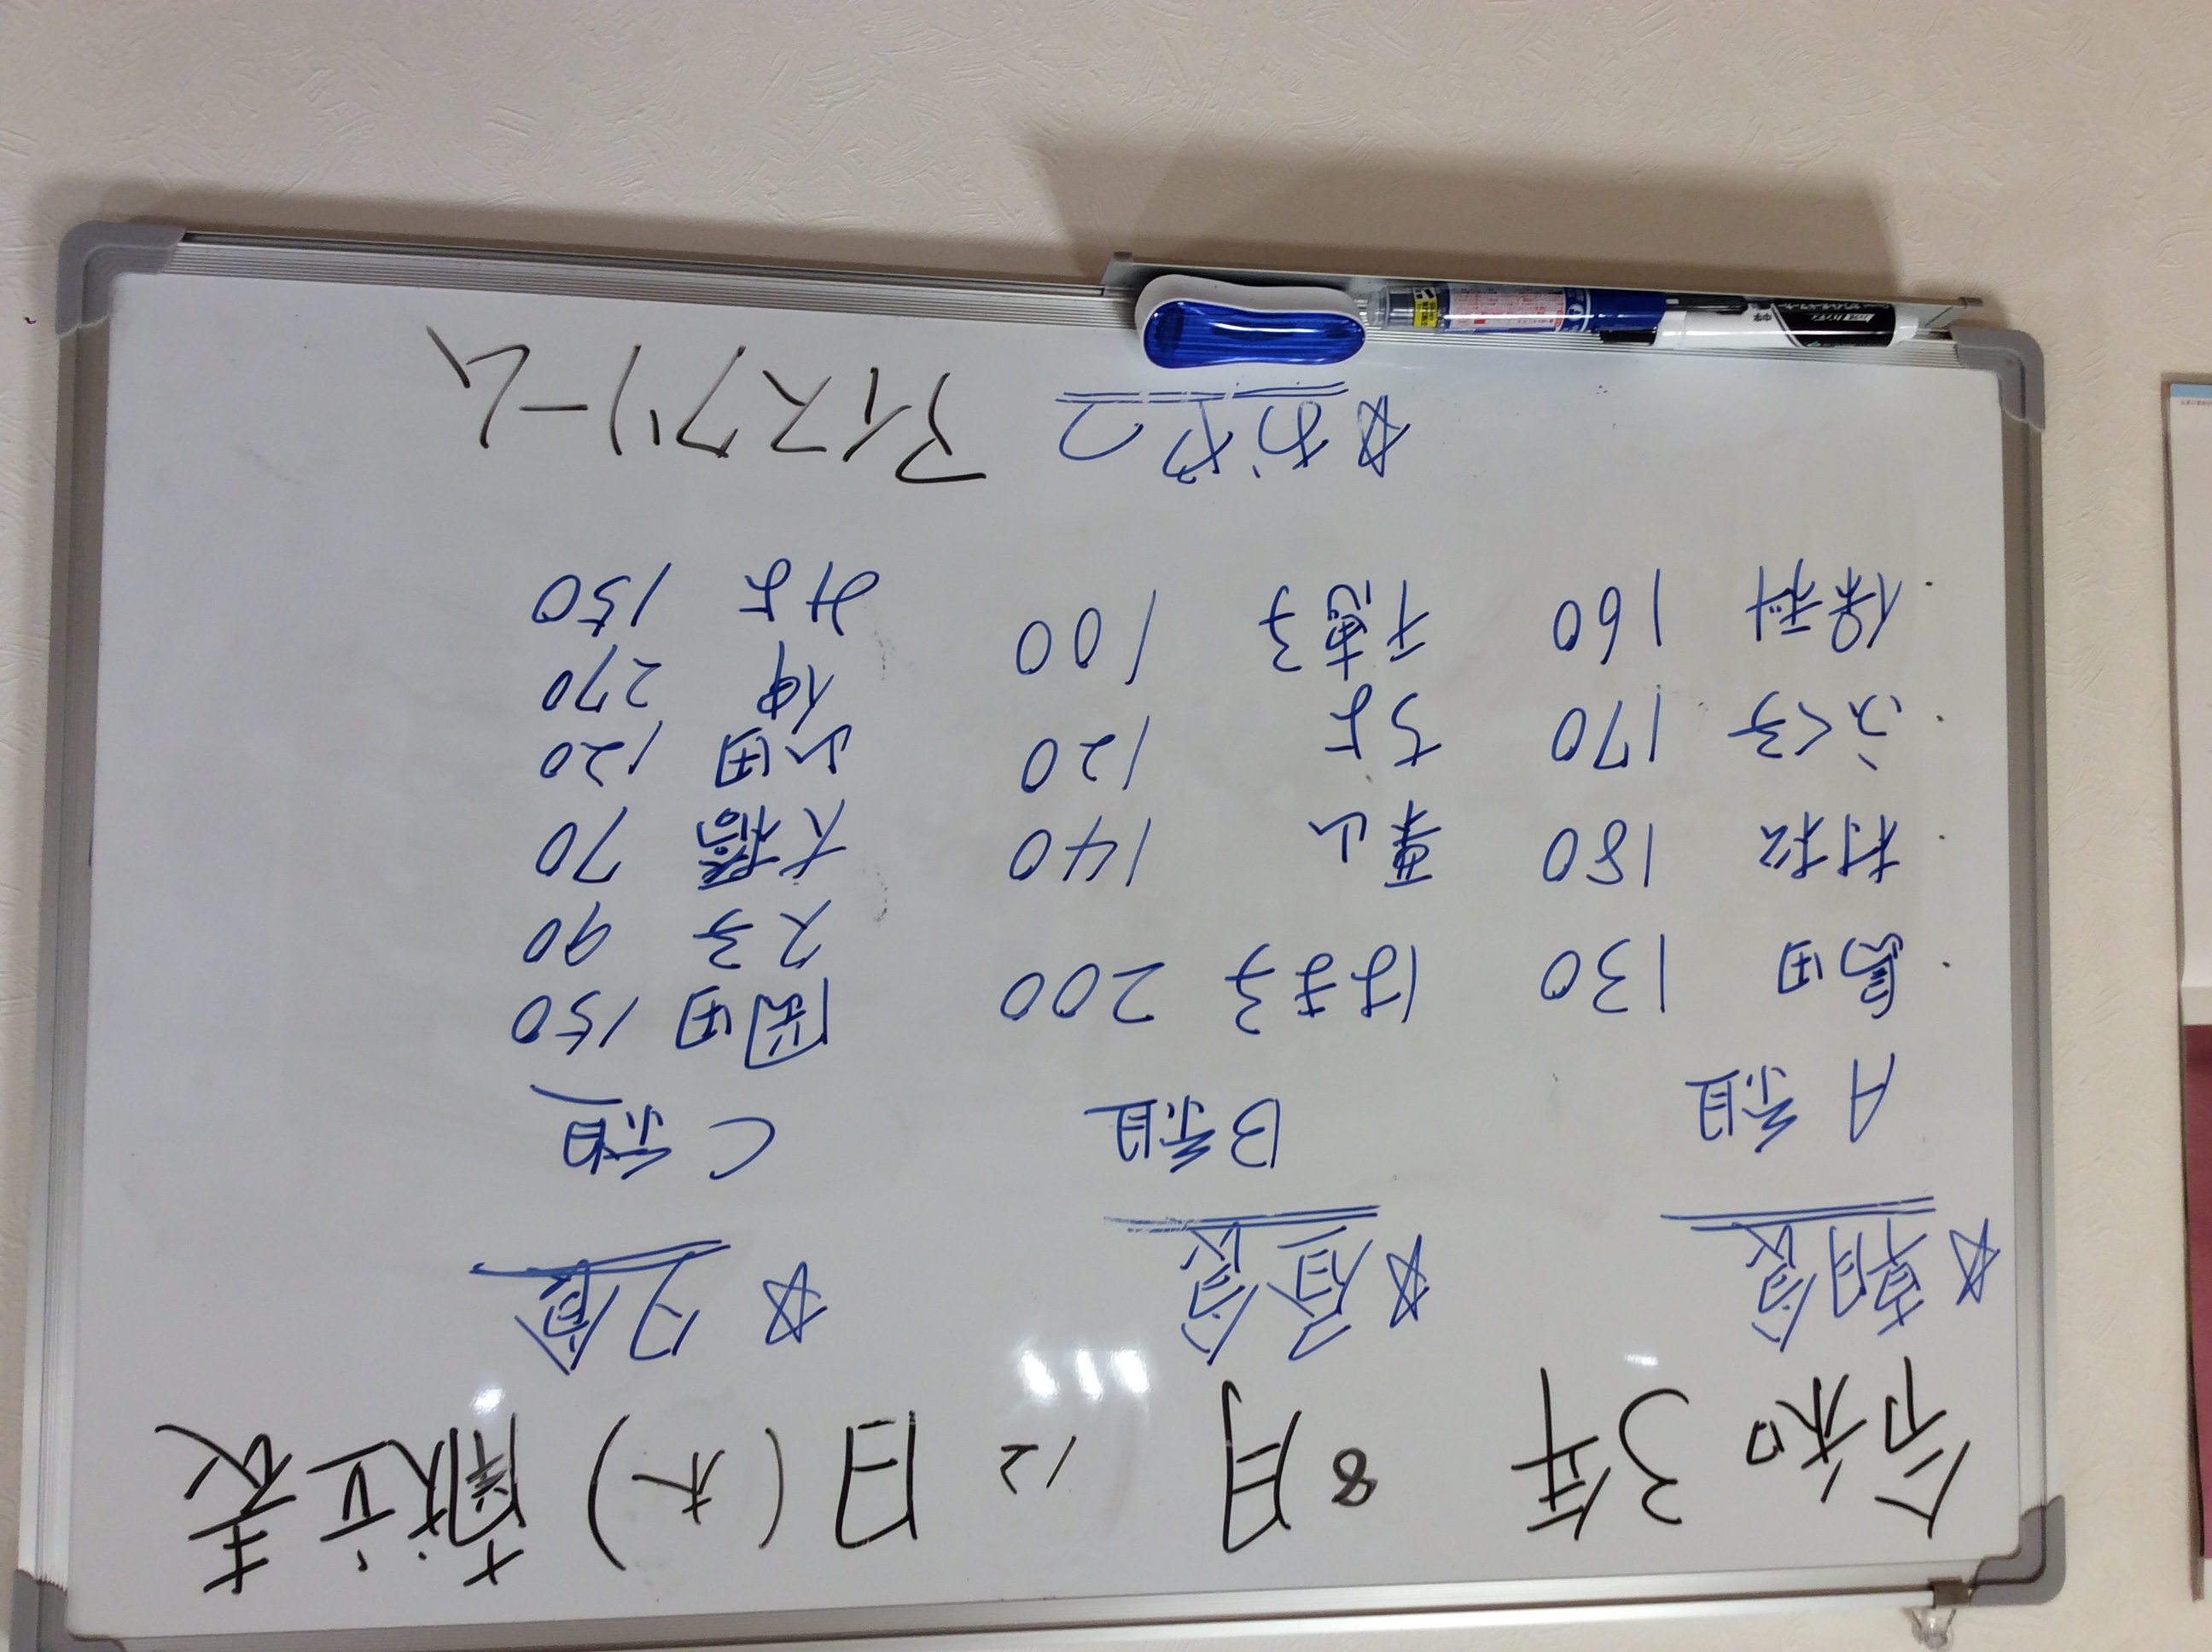 令和3年 8月 12日(木) 献立表
☆朝食 ☆昼食 ☆夕食
A組 B組 C組
島田 130 はま子 200 岡田 150
久子 90
村松 180 重山 140 大橋 70
ふく子 170 ちよ 120 山田 120
仲 270
保科 160 千恵子 100 みよ 150
☆おやつ アイスクリーム